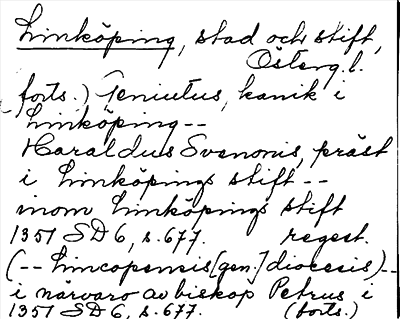 Linköping, stad och stift,
Österg.l.
(forts.) Geniutus, kanik i
Linköping--
Haraldus Svenonis, präst
i Linköpings stift--
inom Linköpings stift
1351 SD 6, s. 677. regest.
(-- Lincopensis [gen.] diocesis)--
i närvaro av biskop Petrus i
1351 SD 6, s. 677. (forts.)